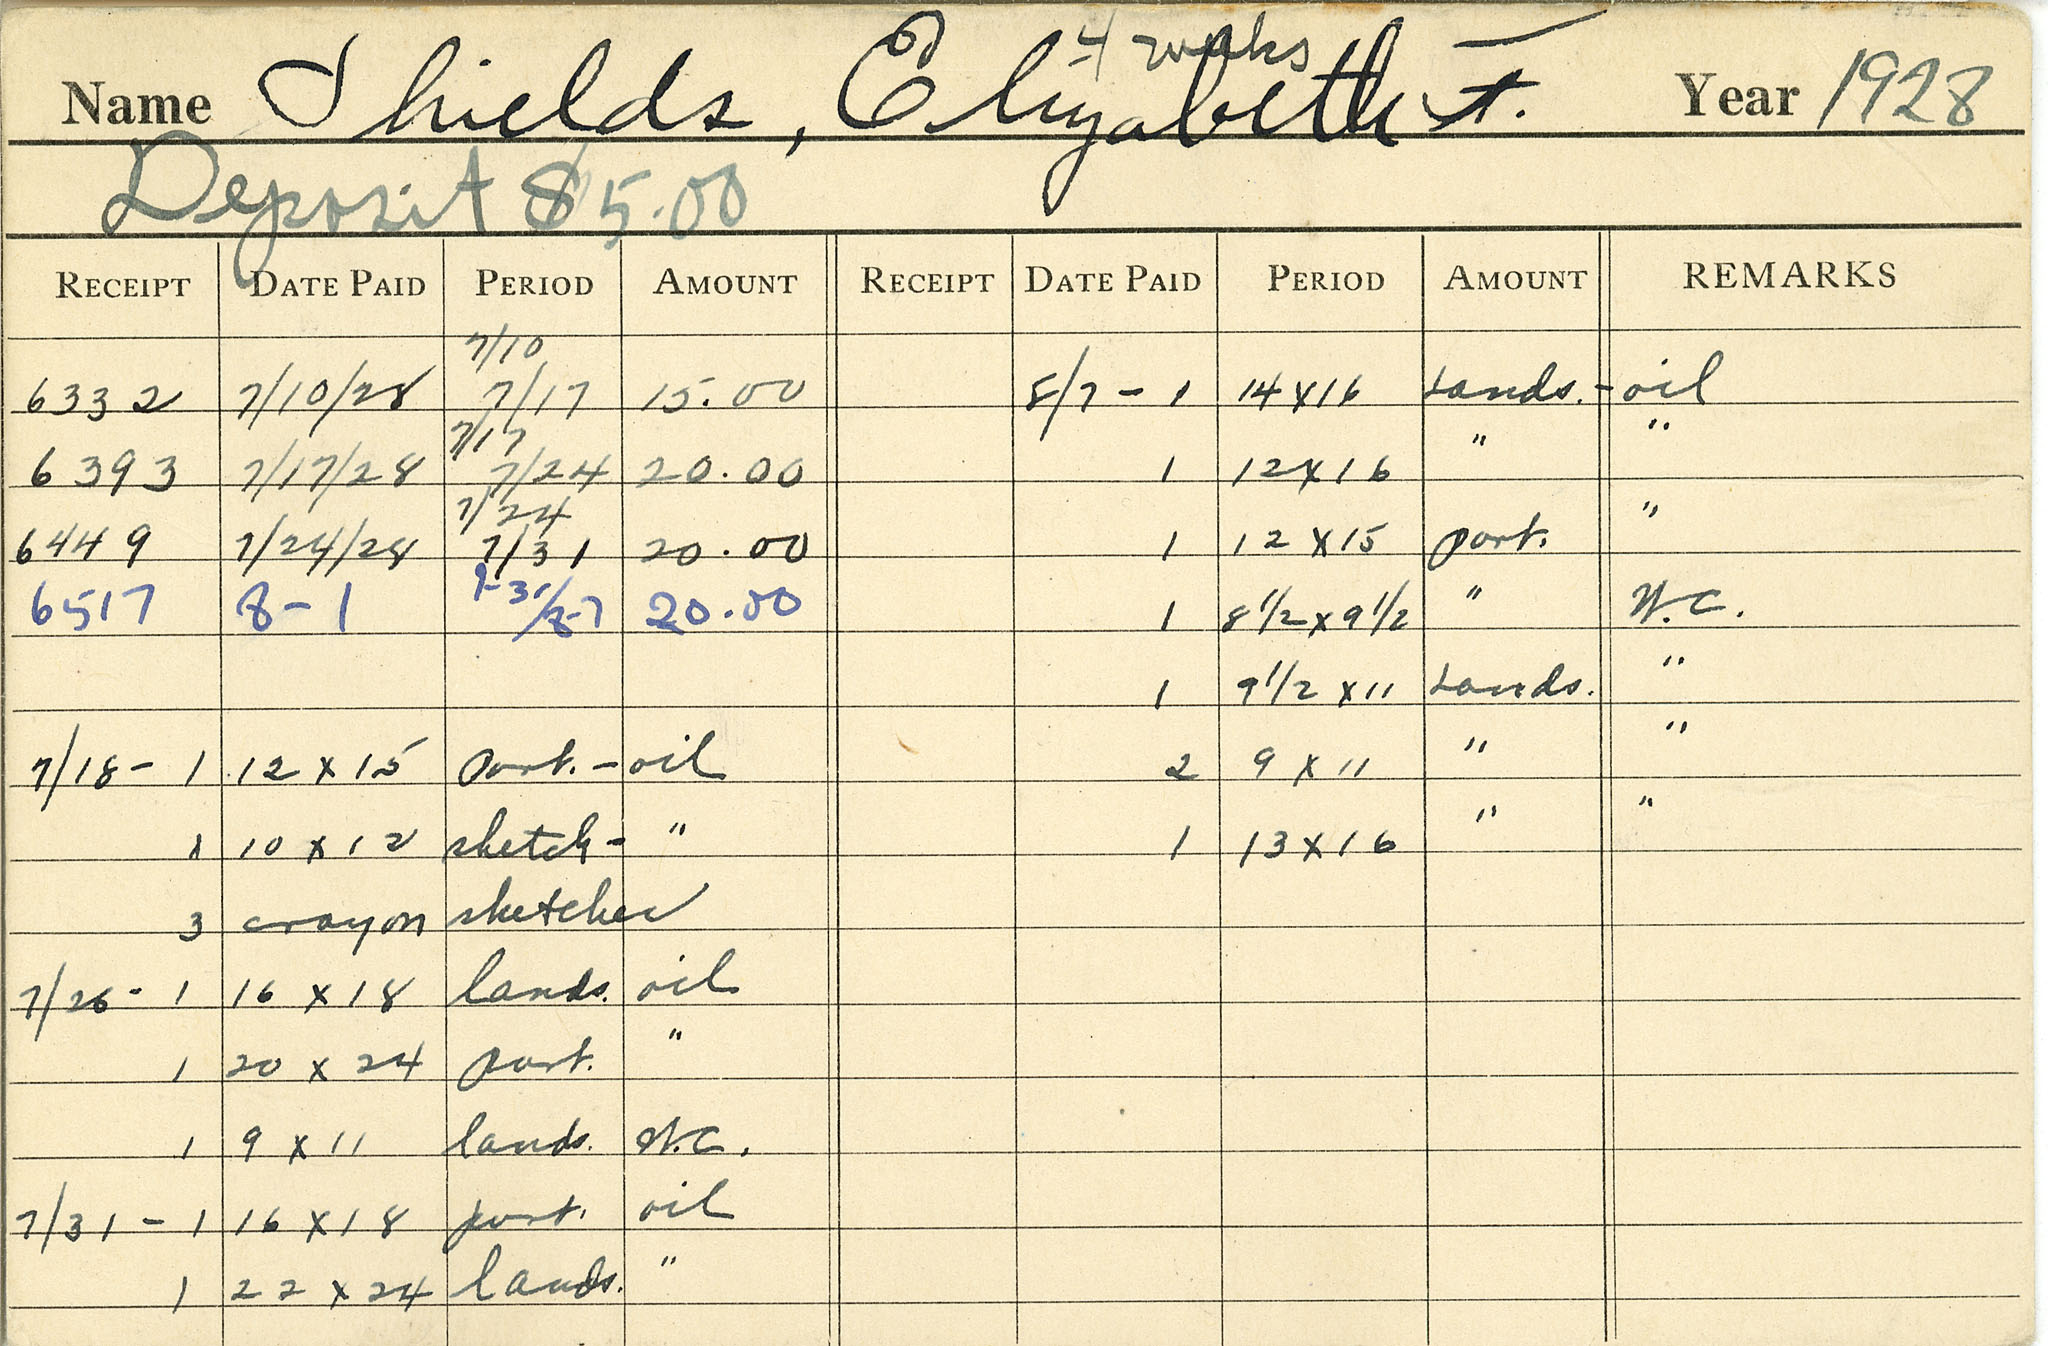 4 weeks
Name Shields, Elizabeth F. Year 1928
Deposit $5.00
RECEIPT DATE PAID PERIOD AMOUNT RECEIPT DATE PAID PERIOD AMOUNT REMARKS
7/10
6332 7/10/28 7/17 15.00 8/7 - 1 14 x 16 Lands. - oil
7/17 " "
6393 7/17/28 7/24 20.00 1 12 x 16
7/24 "
6449 7/24/28 7/31 20.00 1 12 x 15 port.
6517 8-1 7-31/8-7 20.00 1 8 1/2 x 9 1/2 " W.C.
1 9 1/2 x 11 Lands. "
7/18 - 1 12 x 15 port. - oil 2 9 x 11 " "
1 10 x 12 sketch - " 1 13 x 16 " "
3 crayon sketches
7/26 - 1 16 x 18 lands. oil
1 20 x 24 port. "
1 9 x 11 lands. W.C.
7/31 - 1 16 x 18 port. oil
1 22 x 24 lands. "